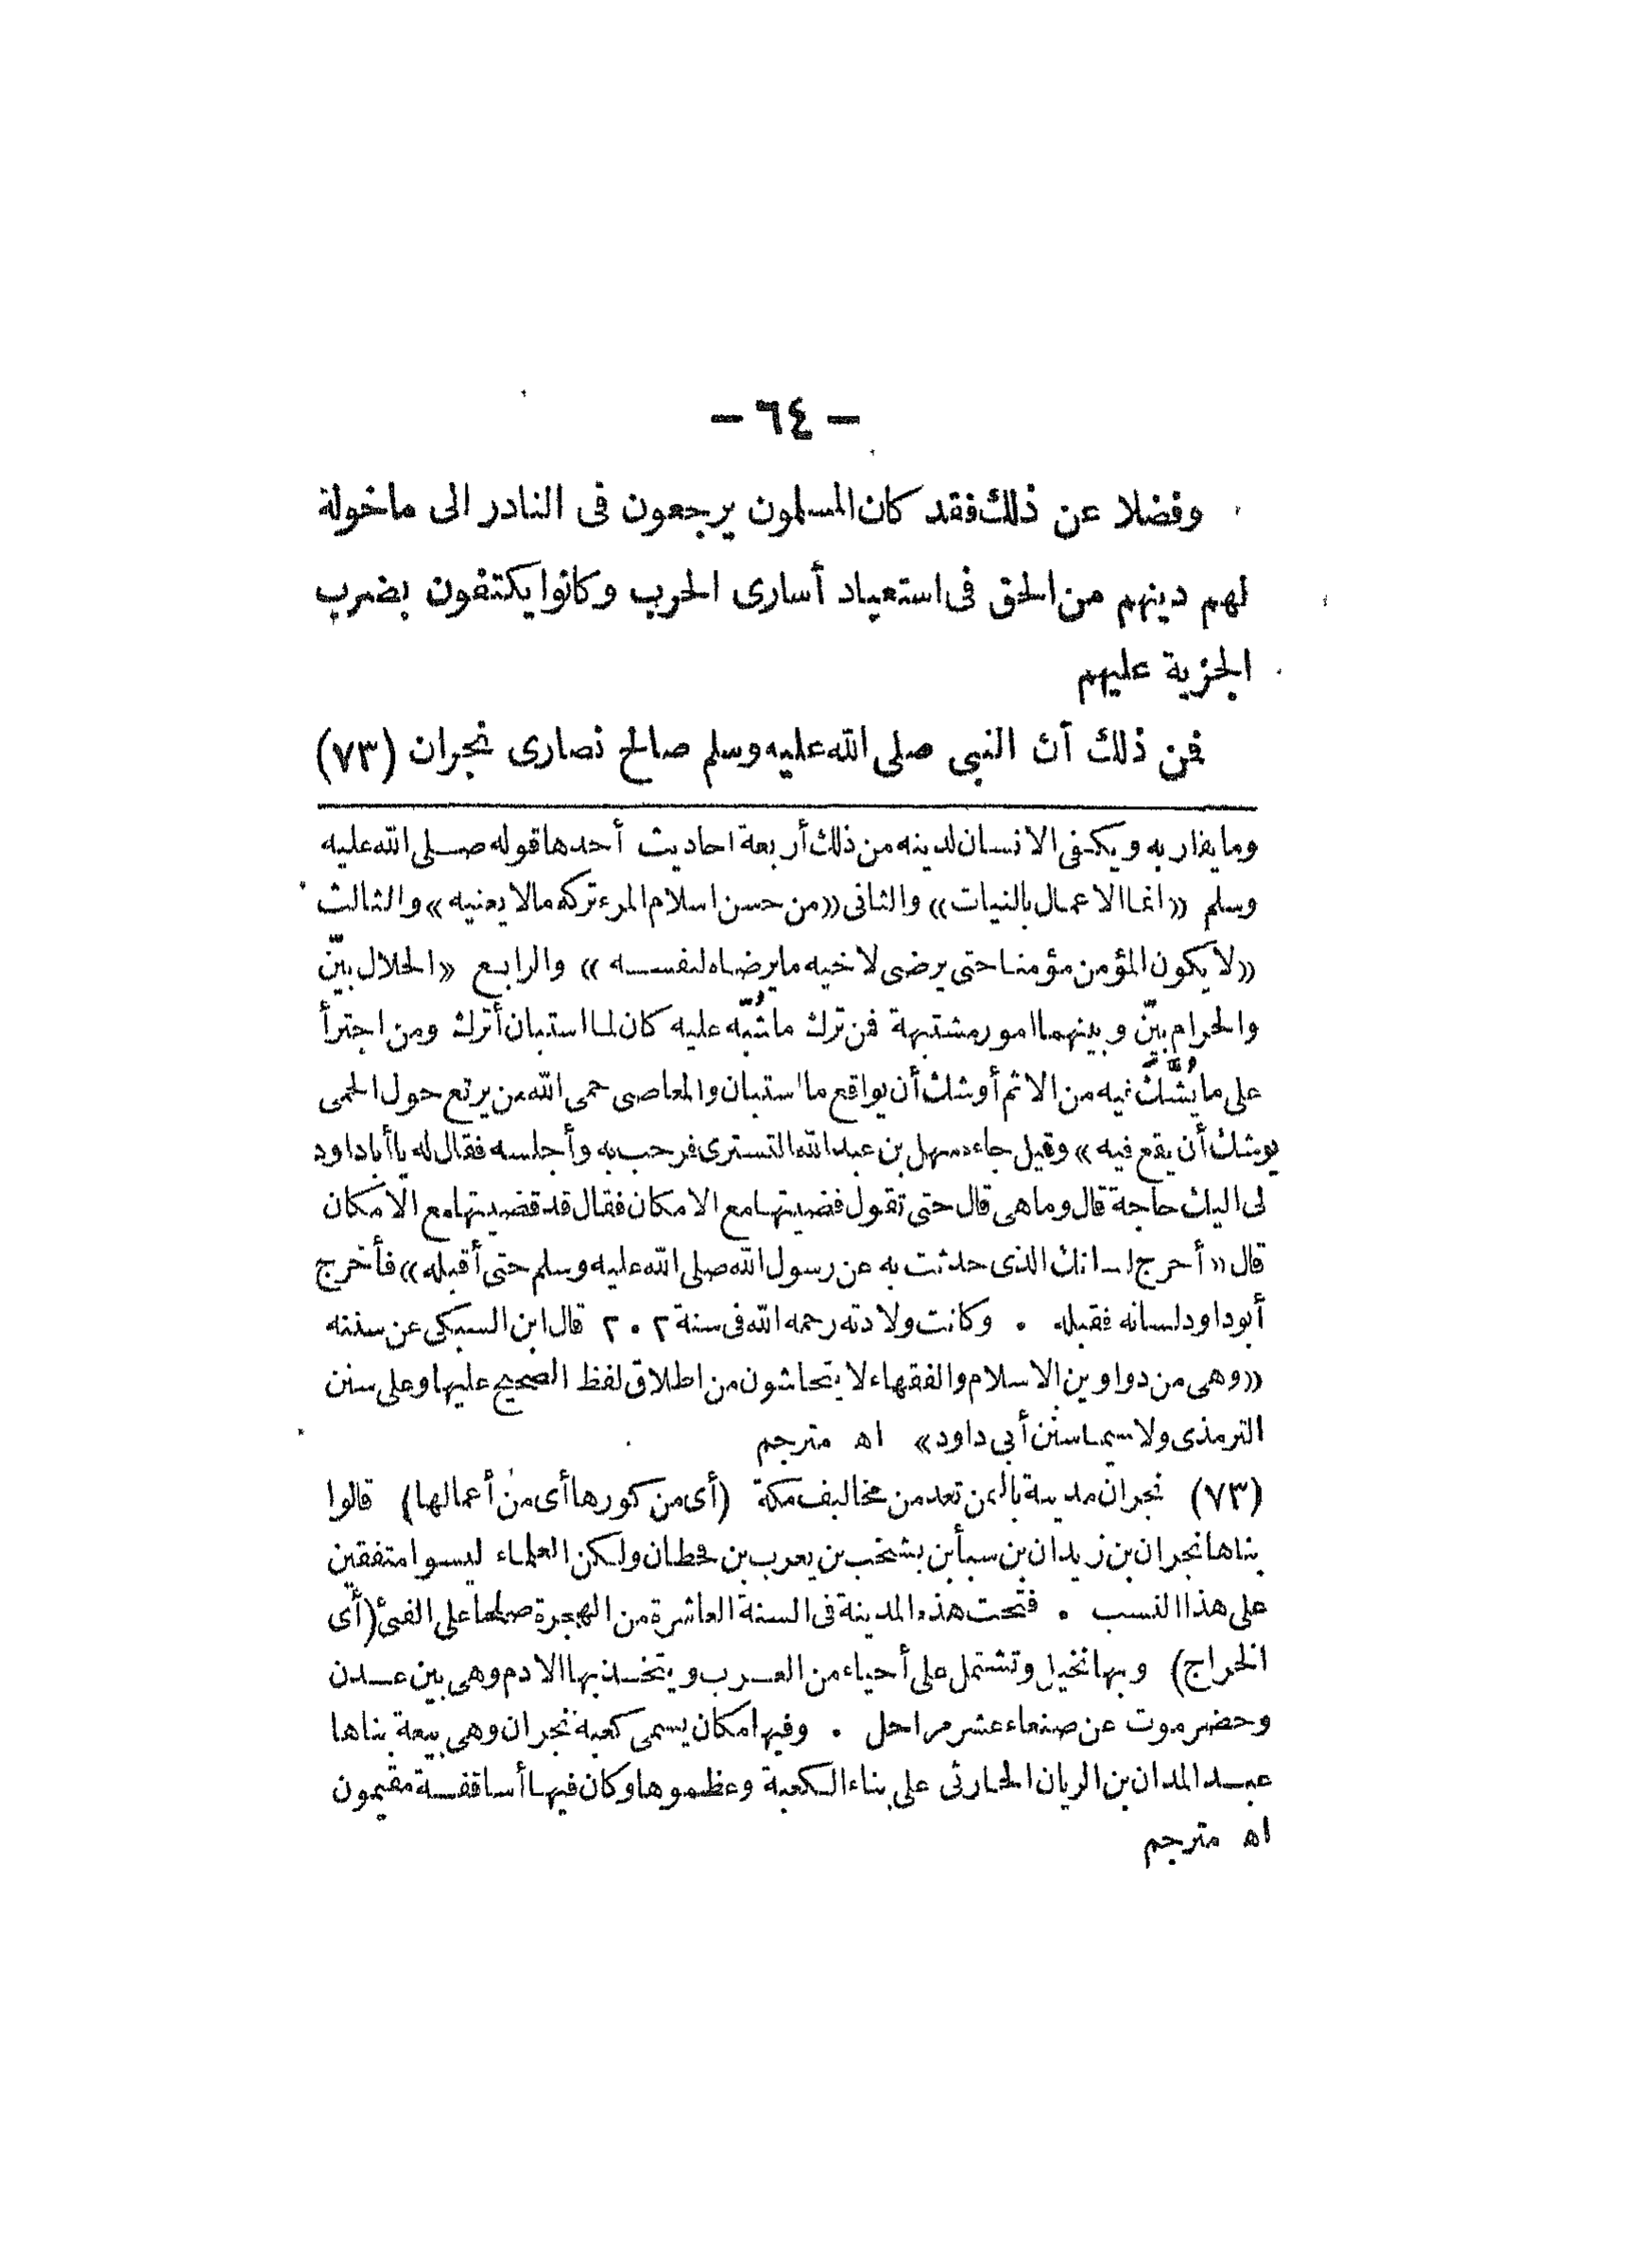 — ٦٤ —
وفضلا عن ذلك فقد كان المسلمون يرجعون فى النادر الى ماخولة
لهم دينهم من الحق فى استعباد أسارى الحرب وكانوا يكتفون بضرب
الجزية عليهم
فمن ذلك أن النبى صلى الله عليه وسلم صالح نصارى نجران (٧٣)
وما يقاربه ويكفى الانسان لدينه من ذلك أربعة احاديث أحدها قوله صلى الله عليه
وسلم «انما الاعمال بالنيات» والثانى «من حسن اسلام المرء تركه مالا يعنيه» والثالث
«لا يكون المؤمن مؤمنا حتى يرضى لاخيه ما يرضاه لنفسه» والرابع «الحلال بيّن
والحرام بيّن وبينهما امور مشتبهة فمن ترك ما شُبّه عليه كان لما استبان أترك ومن اجترأ
على ما يُشَكّ فيه من الاثم أوشك أن يواقع ما استبان والمعاصى حمى الله من يرتع حول الحمى
يوشك أن يقع فيه» وقيل جاءه سهل بن عبد الله التسترى فرحب به وأجلسه فقال له يا أبا داود
لى اليك حاجة قال وما هى قال حتى تقول قضيتها مع الامكان فقال قد قضيتها مع الامكان
قال «أخرج لسانك الذى حدثت به عن رسول الله صلى الله عليه وسلم حتى أقبله» فأخرج
أبو داود لسانه فقبله . وكانت ولادته رحمه الله فى سنة ٢٠٢ قال ابن السبكى عن سننه
«وهى من دواوين الاسلام والفقهاء لا يتحاشون من اطلاق لفظ الصحيح عليها وعلى سنن
الترمذى ولا سيما سنن أبى داود» اه مترجم
(٧٣) نجران مدينة باليمن تعد من مخاليف مكة (أى من كورها أى من أعمالها) قالوا
بناها نجران بن زيدان بن سبأ بن يشخب بن يعرب بن قحطان ولكن العلماء ليسوا متفقين
على هذا النسب . فتحت هذه المدينة فى السنة العاشرة من الهجرة صلحا على الفئ (أى
الخراج) وبها نخيل وتشتمل على أحياء من العرب ويتخذ بها الادم وهى بين عدن
وحضرموت عن صنعاء عشر مراحل . وفيها مكان يسمى كعبة نجران وهى بيعة بناها
عبد المدان بن الريان الحارثى على بناء الكعبة وعظموها وكان فيها أساقفة مقيمون
اه مترجم